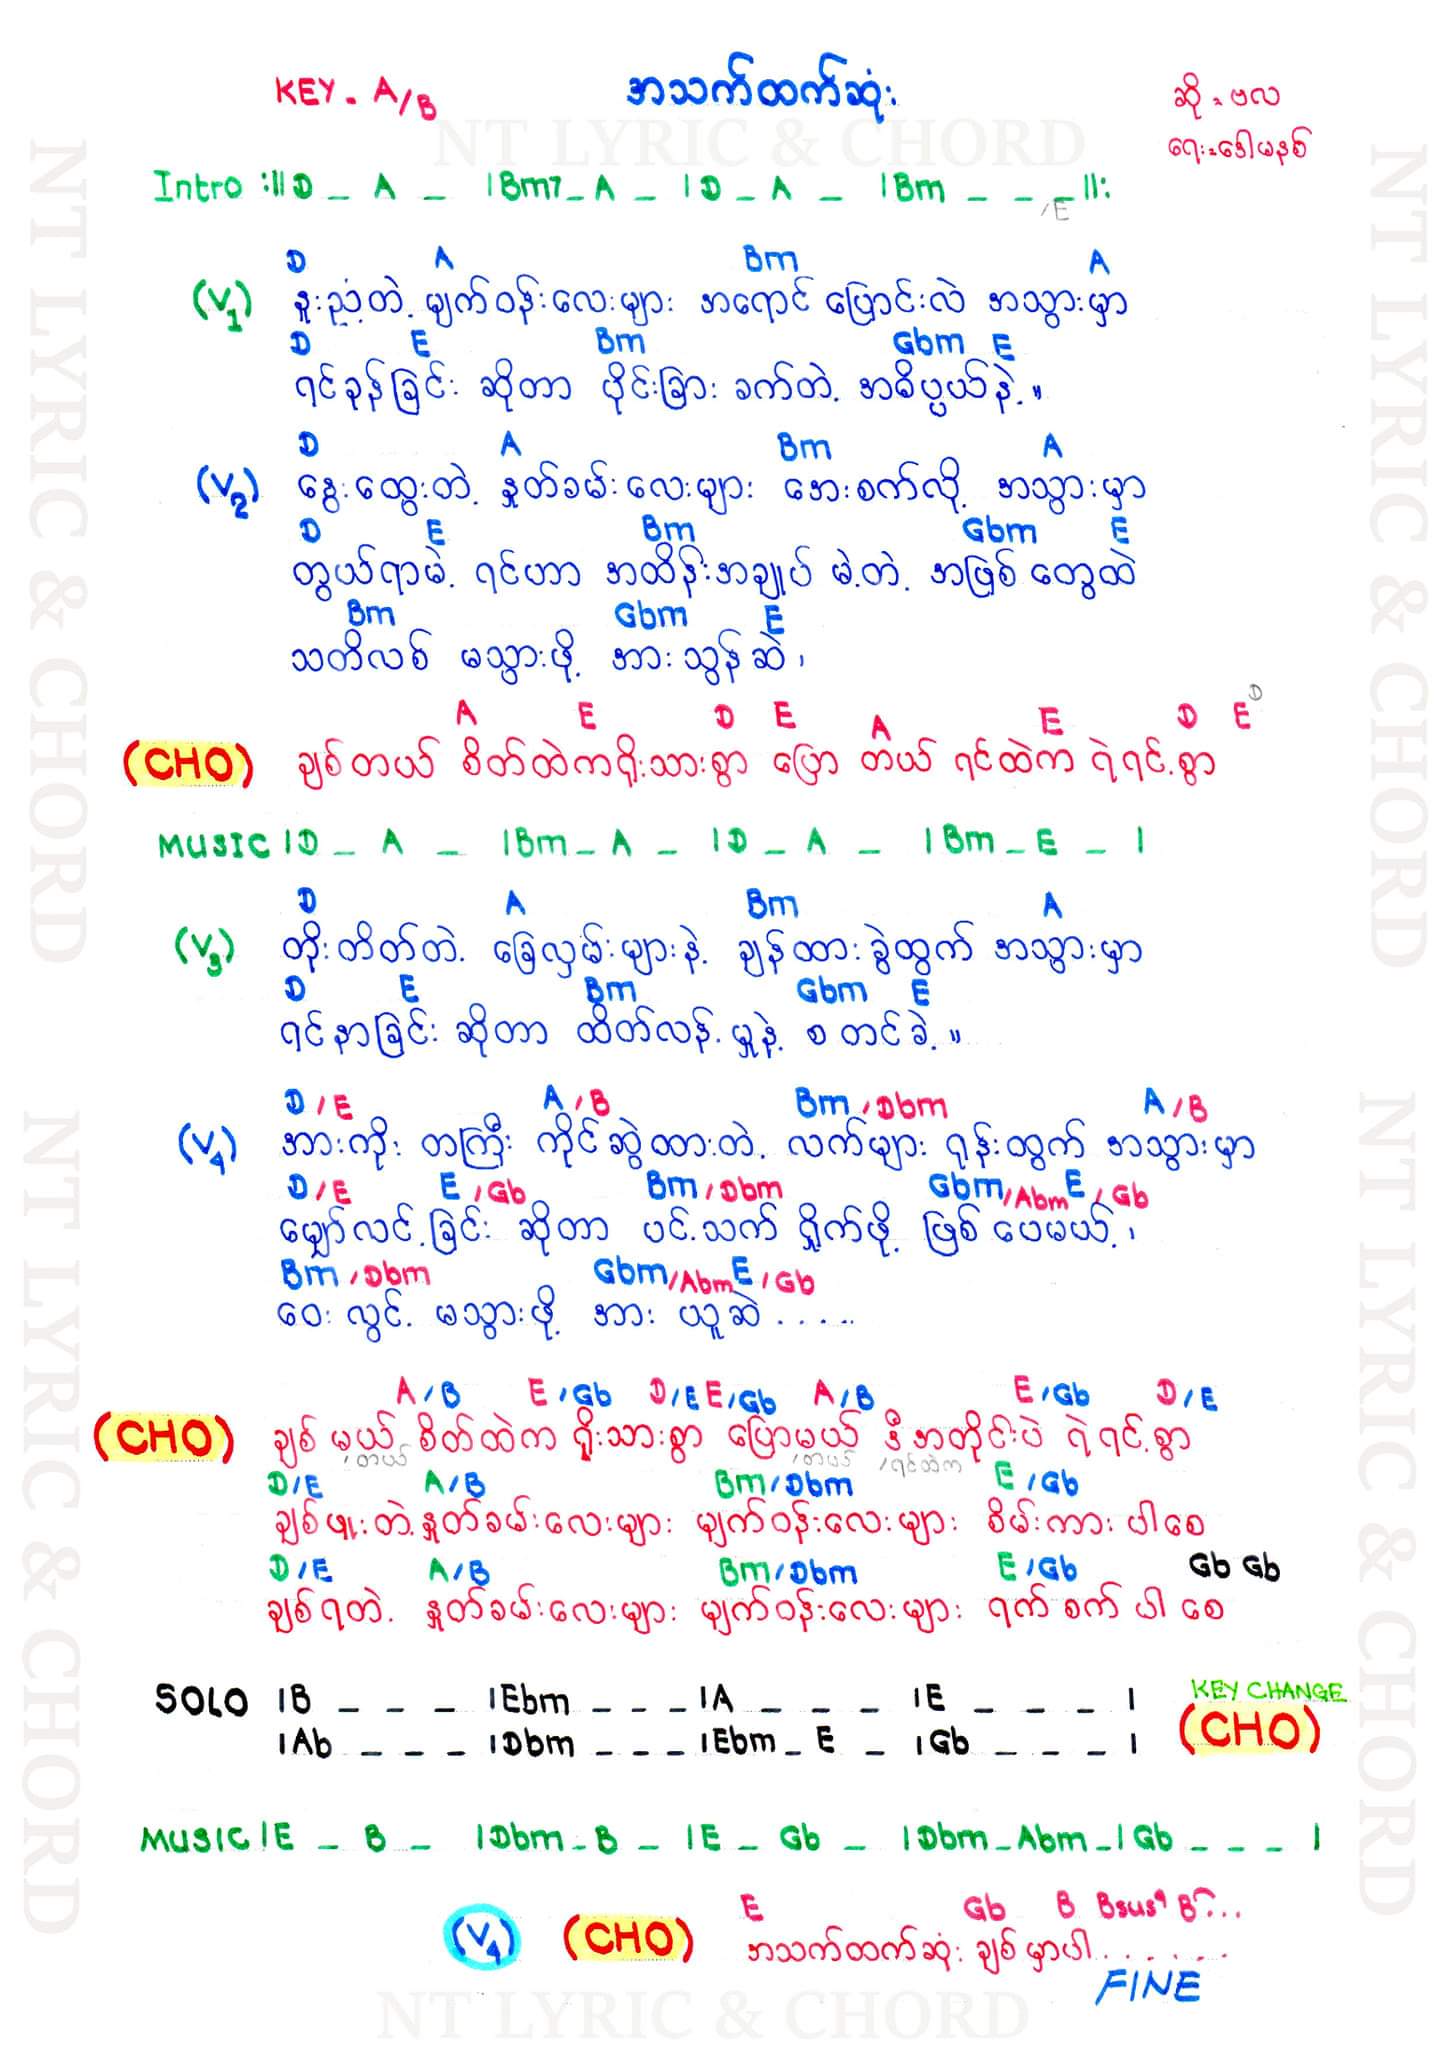 KEY - A/B
အသက်ထက်ဆုံး
ဆို - ဗလ
ရေး - ဒေါမနစ်
NT LYRIC & CHORD
Intro :|| D _ A _ | Bm7 _ A _ | D _ A _ | Bm _ _ _ ||:
/E
D A Bm A
(V1) နူးညံ့တဲ့ မျက်ဝန်းလေးများ အရောင်ပြောင်းလဲ အသွားမှာ
D E Bm Gbm E
ရင်ခုန်ခြင်း ဆိုတာ ပိုင်းခြားခက်တဲ့ အဓိပ္ပယ်နဲ့။
D A Bm A
(V2) နွေးထွေးတဲ့ နှုတ်ခမ်းလေးများ အေးစက်လို့ အသွားမှာ
D E Bm Gbm E
တွယ်ရာမဲ့ ရင်ဟာ အထိန်းအချုပ် မဲ့တဲ့ အဖြစ်တွေထဲ
Bm Gbm E
သတိလစ် မသွားဖို့ အားသွန်ဆဲ၊
A E D E A E D E D
(CHO) ချစ်တယ် စိတ်ထဲကရိုးသားစွာ ပြောတယ် ရင်ထဲက ရဲရင့်စွာ
MUSIC | D _ A _ | Bm _ A _ | D _ A _ | Bm _ E _ |
D A Bm A
(V3) တိုးတိတ်တဲ့ ခြေလှမ်းများနဲ့ ချန်ထားခွဲထွက် အသွားမှာ
D E Bm Gbm E
ရင်နာခြင်း ဆိုတာ ထိတ်လန့်မှုနဲ့ စတင်ခဲ့။
D/E A/B Bm/Dbm A/B
(V4) အားကိုး တကြီး ကိုင်ဆွဲထားတဲ့ လက်များ ရုန်းထွက် အသွားမှာ
D/E E/Gb Bm/Dbm Gbm/Abm E/Gb
မျှော်လင့်ခြင်း ဆိုတာ ပင့်သက် ရှိုက်ဖို့ ဖြစ်ပေမယ့်၊
Bm/Dbm Gbm/Abm E/Gb
ဝေးလွင့် မသွားဖို့ အားယူဆဲ.....
A/B E/Gb D/E E/Gb A/B E/Gb D/E
(CHO) ချစ်မယ် စိတ်ထဲက ရိုးသားစွာ ပြောမယ် ဒီအတိုင်းပဲ ရဲရင့်စွာ
/တယ် /တယ် /ရင်ထဲက
D/E A/B Bm/Dbm E/Gb
ချစ်ဖူးတဲ့နှုတ်ခမ်းလေးများ မျက်ဝန်းလေးများ စိမ်းကားပါစေ
D/E A/B Bm/Dbm E/Gb Gb Gb
ချစ်ရတဲ့ နှုတ်ခမ်းလေးများ မျက်ဝန်းလေးများ ရက်စက်ပါစေ
SOLO | B _ _ _ | Ebm _ _ _ | A _ _ _ | E _ _ _ |
KEY CHANGE
| Ab _ _ _ | Dbm _ _ _ | Ebm _ E _ | Gb _ _ _ |
(CHO)
MUSIC | E _ B _ | Dbm _ B _ | E _ Gb _ | Dbm _ Abm _ | Gb _ _ _ |
E Gb B Bsus4 B...
(V4) (CHO) အသက်ထက်ဆုံး ချစ်မှာပါ.......
FINE
NT LYRIC & CHORD
NT LYRIC & CHORD
NT LYRIC & CHORD
NT LYRIC & CHORD
NT LYRIC & CHORD